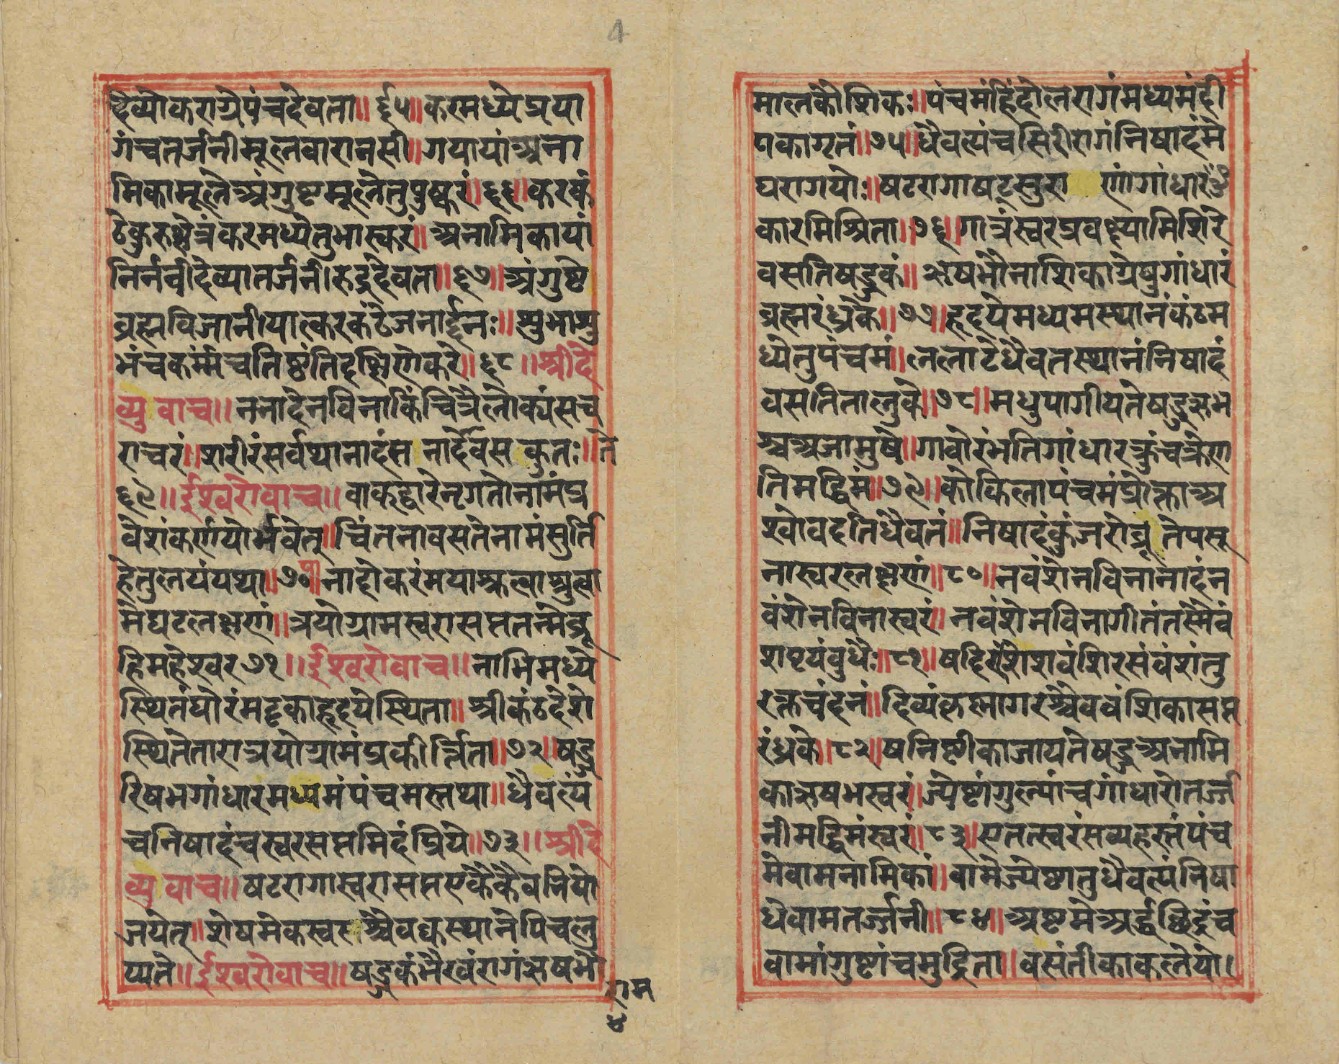 4
दैव्यौकराग्रेपंचदेवता॥६५॥करमध्येप्रया
गंचतर्जनीमूलवारानसी॥गयायांअना
मिकामूलेअंगुष्टमूलेतुपुष्करं॥६६॥करकं
ठेकुरुक्षेत्रंकरमध्येतुभास्करं॥अनामिकायां
ब्रह्मविजानीयात्करकंठेजनार्द्दनः॥शुभाशु
भंचकर्म्मचतिष्ठंतिदक्षिणेकरे॥६८॥श्रीदे
व्युवाच॥ननादेनविनाकिंचित्रैलोक्यंसच
राचरं॥शरीरंसर्वथानादंस नादेवस कुतः॥ते
६९॥ईश्वरोवाच॥वाकद्वारेनृगतोनामंप्र
वेशंकर्णयोर्भवेत्॥चिंतनावसतेनामंसुर्ति
हेतुलयंयथा॥७०॥नादोकरंमयाज्ञत्वाश्रुत्वा
मेघटलक्षणं॥त्रयोग्रामस्वरासप्ततन्मेब्रू
हिमहेश्वर७१॥ईश्वरोवाच॥नाभिमध्ये
स्थितंघोरंमदृकाहृदयेस्थिता॥श्रीकंठदेशे
स्थितेतारात्रयोग्रामंप्रकीर्त्तिता॥७२॥षड्ज
रिषभगांधारंमध्यमंपंचमस्तथा॥धैवत्यं
चनिषादंचस्वरसप्तमिदंप्रिये॥७३॥श्रीदे
व्यु वाच॥षटरागास्वरासप्तएकैकैवनियो
जयेत्॥शेषमेकस्वरंश्चैवक्वस्थानेपिचलु
प्यते॥ईश्वरोवाच॥षड्जकंभैरवंरागंऋषभै
राम
४
मालकौशिकः॥पंचमंहिंदोलरागंमध्यमंदी
पकागृतं॥७५॥धैवत्यंचसिरीरागंनिषादंमे
घरागयोः॥षटरागाषट्सुरा णांगांधारंॐ
कारमिश्रिता॥७६॥गात्रंस्वरप्रवक्ष्यामिशिरे
वसतिषड्जकं॥ऋषभौनाशिकाग्रेषुगांधारं
ब्रह्मरंध्रके॥७७॥हृदयेमध्यमस्थानंकंठम
ध्येतुपंचमं॥ललाटेधैवतस्थानंनिषादं
वसतितालुके॥७८॥मधुपागीयतेषड्जऋभ
श्चअजामुषे॥गावोरंभतिगांधारक्रुंचक्रेणा
तिमद्धिमं॥७९॥कोकिलापंचमंप्रोक्ताअ
श्वोवदतिधैवतं॥निषादंकुंजरोब्रू तेपसू
नास्वरलक्षणं॥८०॥नवंशेनविनानादंन
वंशेनविनास्वरं॥नवंशेनविनागीतंतस्मैवं
शष्टयंबुधैः॥८१॥षदिरोशेशवंशिरसंवंशंतु
रक्तचंदनं॥दिव्यंकृस्नागरंश्चैववंशिकासप्त
रंध्रके॥८२॥षनिष्ठीकाजायतेषड्जअनामि
काऋषभस्वरं॥ज्येष्टांगुल्यांचगांधारोतर्ज्ज
नीमद्धिमंस्वरं॥८३॥एतत्स्वरंसव्यहस्तंपंच
मेवामनामिकां॥वामेज्येष्ठातुधैवत्यंनिषा
धेवामतर्ज्जनी॥८४॥अष्टमेअर्द्धछिद्रंच
वामांगुष्टांचमुद्रिता॥वसंतीकाकलेयो।